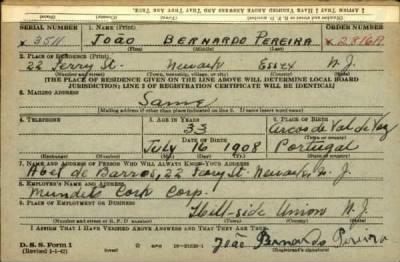 I AFFIRM THAT I HAVE VERIFIED ABOVE ANSWERS AND THAT THEY ARE TRUE.
SERIAL NUMBER 1. NAME (Print) ORDER NUMBER
x 3511 JOÃO BERNARDO PEREIRA x 2816A
(First) (Middle) (Last)
2. PLACE OF RESIDENCE (Print)
22 Ferry St. Newark Essex N.J.
(Number and street) (Town, township, village, or city) (County) (State)
[THE PLACE OF RESIDENCE GIVEN ON THE LINE ABOVE WILL DETERMINE LOCAL BOARD
JURISDICTION; LINE 2 OF REGISTRATION CERTIFICATE WILL BE IDENTICAL]
3. MAILING ADDRESS
Same
[Mailing address if other than place indicated on line 2. If same insert word same]
4. TELEPHONE 5. AGE IN YEARS 6. PLACE OF BIRTH
33 Arcos de Val de Vaz
DATE OF BIRTH
July 16 1908 Portugal
(Exchange) (Number) (Mo.) (Day) (Yr.) (State or country)
7. NAME AND ADDRESS OF PERSON WHO WILL ALWAYS KNOW YOUR ADDRESS
Abel de Barros, 22 Ferry St. Newark, N.J.
8. EMPLOYER'S NAME AND ADDRESS
Mundet Cork Corp.
9. PLACE OF EMPLOYMENT OR BUSINESS
Hill-side Union N.J.
(Number and street or R. F. D. number) (Town) (County) (State)
I AFFIRM THAT I HAVE VERIFIED ABOVE ANSWERS AND THAT THEY ARE TRUE.
D. S. S. Form 1
(Revised 1-1-42) João Bernardo Pereira
(Registrant's signature)